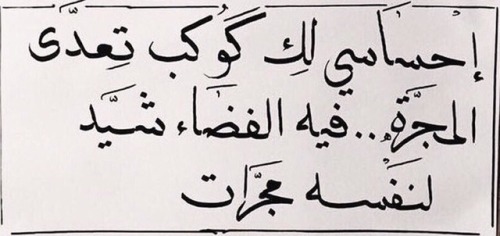 إحساسي لك كوكب تعدَّى
المجرَّة .. فيه الفضاء شيَّد
لنفسه مجرَّات